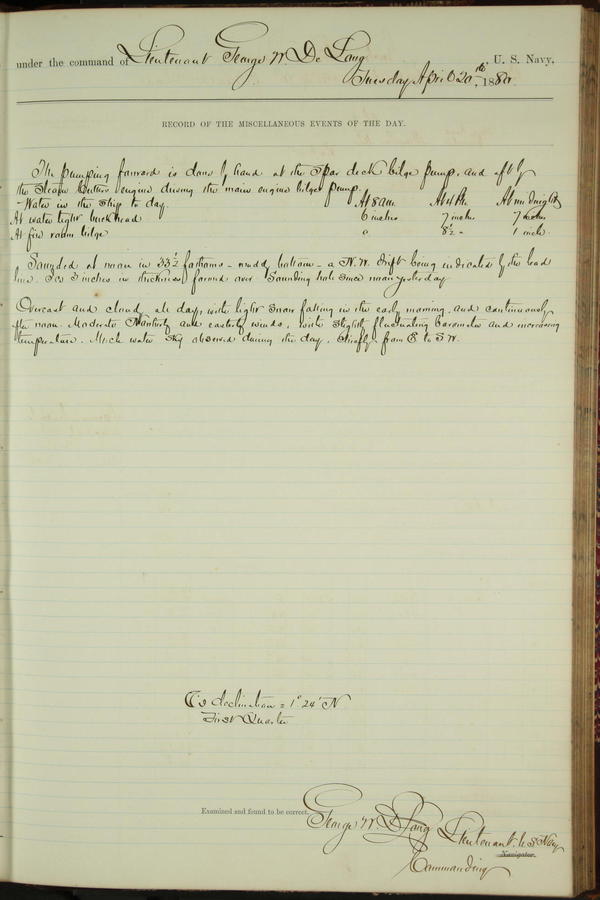 under the command of Lieutenant George W. De Long, U. S. Navy,
Tuesday April 20th, 1880.
RECORD OF THE MISCELLANEOUS EVENTS OF THE DAY.
The pumping forward is done by hand at the spar deck bilge pump, and aft by
the Steam Cutters engine driving the main engine bilge pump.
Water in the ship to day At 8 am At 4 Pm At midnight
At water tight bulkhead 6 inches 7 inches 7 inches
At fire room bilge 0 8½ " 1 inch
Sounded at noon in 33½ fathoms - muddy bottom - a N.W. drift being indicated by the lead
line. Ice 3 inches in thickness formed over Sounding hole since noon yesterday
Overcast and cloudy all day, with light snow falling in the early morning, and continuously
after noon. Moderate Northerly and easterly winds, with slightly fluctuating barometer and increasing
temperature. Much water sky observed during the day, chiefly from E to SW.
declination = 1° 24' N
First Quarter
Examined and found to be correct.
George W. De Long Lieutenant U.S. Navy
Navigator.
Commanding